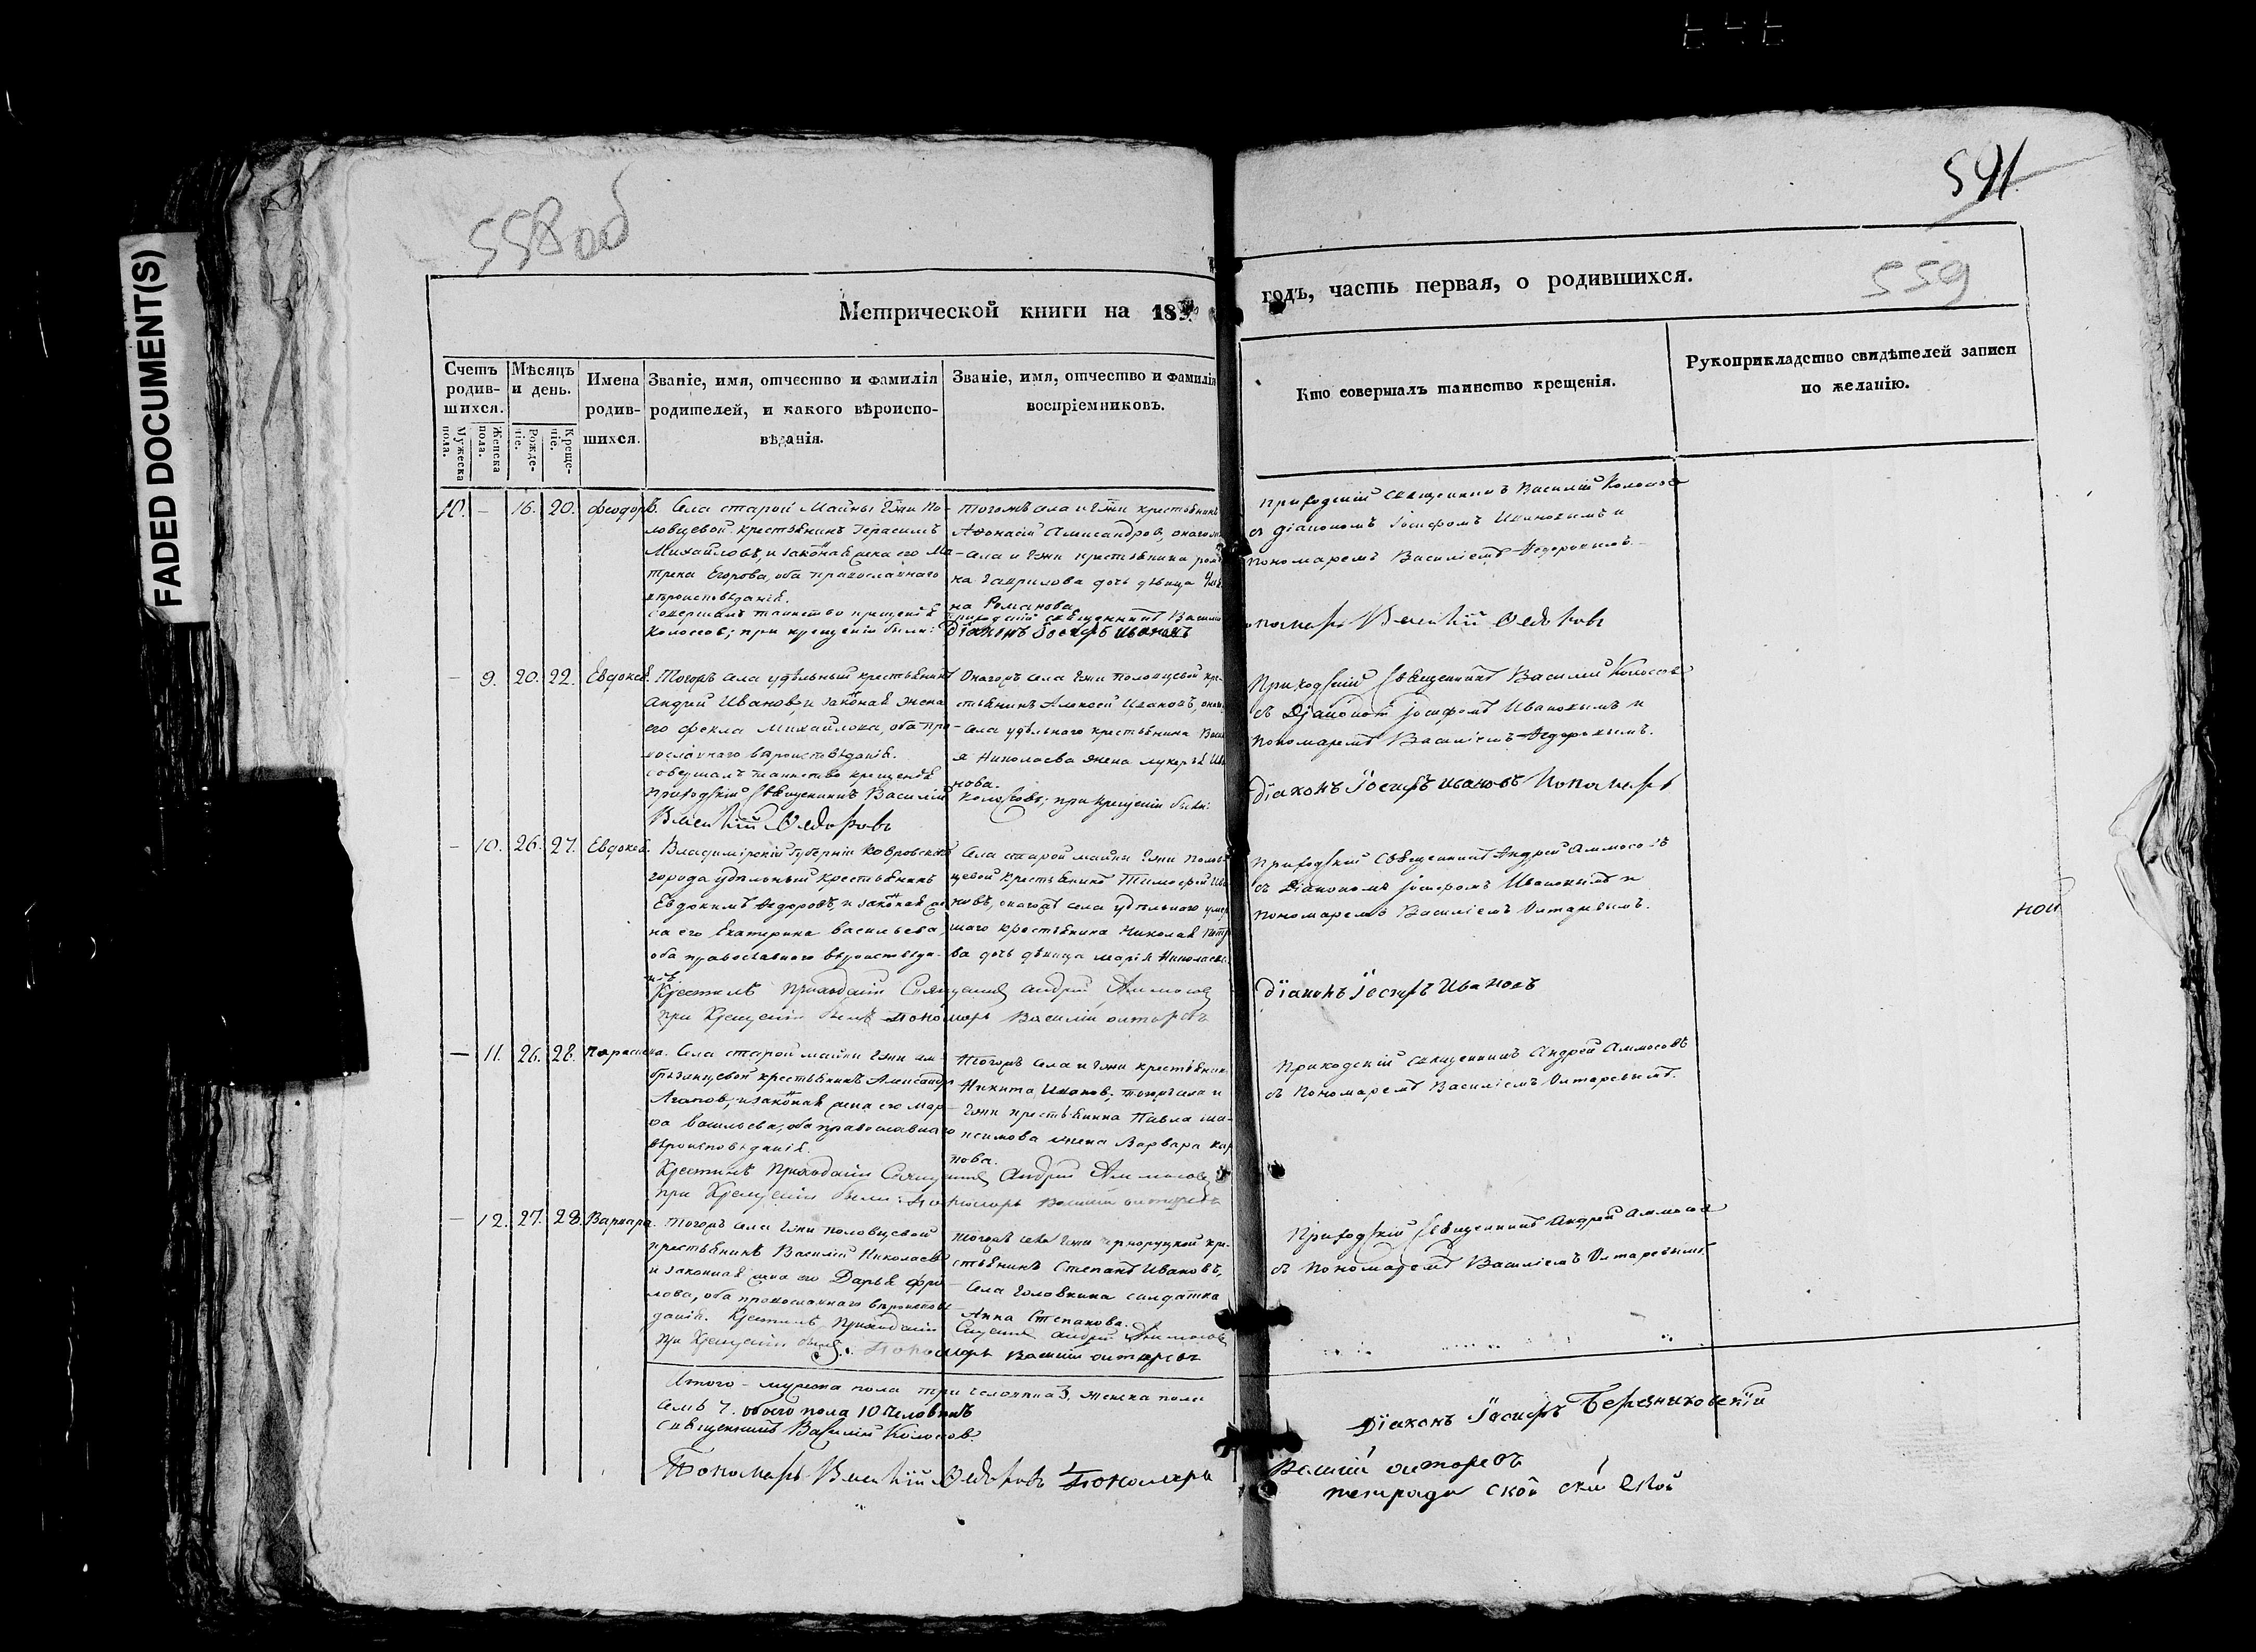 FADED DOCUMENT(S)
558об
591
559
Метрической книги на 183
годъ, часть первая, о родившихся.
Счетъ родив-шихся.
Мужеска пола.
Женска пола.
Мѣсяцъ и день.
Рожде-ніе.
Креще-ніе.
Имена родив-шихся.
Званіе, имя, отчество и фамилія родителей, и какого вѣроиспо-вѣданія.
Званіе, имя, отчество и фамилія воспріемниковъ.
Кто совершалъ таинство крещенія.
Рукоприкладство свидѣтелей записи по желанію.
10. – 16. 20. Феодоръ
Села старой Майны Гжи По-
ловцевой крестьянинъ Герасимъ
Михайловъ, и законная жена его Ма-
трена Егорова, оба православнаго
вѣроисповѣданія.
совершалъ таинство крещенія
Колоссов; при крещеніи были:
тогожъ села и Гжи крестьянинъ
Афонасій Александров, онаго
села и Гжи крестьянина Рома
на Гаврилова дочь дѣвица
на Романова.
Приходскій священникъ Василій
Діаконъ Іосифъ Ивановъ
Приходскій священникъ Василій Колоссов
съ діакономъ Іосифомъ Ивановымъ и
пономаремъ Василіемъ Федоровымъ.
пономарь Василій Федоровъ
– 9. 20. 22. Евдокея.
Тогожъ села удѣльный крестьянинъ
Андрей Ивановъ, и законная жена
его Фекла Михайлова, оба пра-
вославнаго вѣроисповѣданія.
совершалъ таинство крещенія
приходскій священникъ Василій
Василій Федоровъ
Онагожъ села Гжи Половцевой кре-
стьянинъ Алексей Ивановъ,
села удѣльного крестьянина Васи
я Николаева жена Лукерья Ива
нова.
Колоссовъ; при крещеніи были:
Приходскій священникъ Василій Колоссовъ
съ Діакономъ Іосифомъ Ивановымъ и
Пономаремъ Василіемъ Федоровымъ.
Діаконъ Іосифъ Ивановъ Пономарь
– 10. 26. 27. Евдокея.
Владимірской Губерніи Ковровскаго
города удѣльный крестьянинъ
Евдокимъ Федоровъ, и законная же
на его Екатерина Васильева,
оба православного вѣроисповѣда-
нія.
Крестилъ Приходскій Священникъ Андрей Аммосовъ
при Крещеніи былъ Пономарь Василій Олтаревъ
Села старой майны Гжи Полов
цевой крестьянинъ Тимофей Ива
новъ, онагожъ села удѣльного умер
шаго крестьянина Николая Петро
ва дочь дѣвица Марія Николаева.
Приходскій Священникъ Андрей Аммосовъ
съ Діакономъ Іосифомъ Ивановымъ и
Пономаремъ Василіемъ Олтаревымъ.
Діаконъ Іосифъ Ивановъ
ной
– 11. 26. 28. Параскева.
Села старой майны Гжи
крестьянинъ Александръ
Агапов, и законная жена его Мар-
фа Васильева, оба православнаго
вѣроисповѣданія.
Крестилъ Приходскій Священникъ Андрей Аммосовъ
при Крещеніи были: Пономарь Василій Олтаревъ
Тогожъ села и Гжи крестьянинъ
Никита Иванов; тогожъ села и
Гжи крестьянина Павла
жена Варвара
нова.
Приходскій священникъ Андрей Аммосовъ
съ Пономаремъ Василіемъ Олтаревымъ.
– 12. 27. 28. Варвара.
Тогожъ села Гжи Половцевой
крестьянинъ Василій Николаевъ
и законная жена его Дарья Фро-
лова, оба православнаго вѣроиспове-
данія. Крестилъ Приходскій
при Крещеніи былъ: Пономарь Василій Олтаревъ
Тогожъ села Гжи кре-
стьянинъ Степанъ Ивановъ,
Села Головкина солдатка
Анна Степанова.
Священникъ Андрей Аммосовъ
Приходскій Священникъ Андрей Аммосов
съ Пономаремъ Василіемъ Олтаревымъ
Итого – мужеска пола три человека 3, женска пола
семь 7. обоего пола 10 человѣкъ
Священникъ Василій Колоссов.
Пономарь Василій Федоровъ Пономарь
Діаконъ Іосифъ Березниковскій
Василій Олтаревъ
тетради